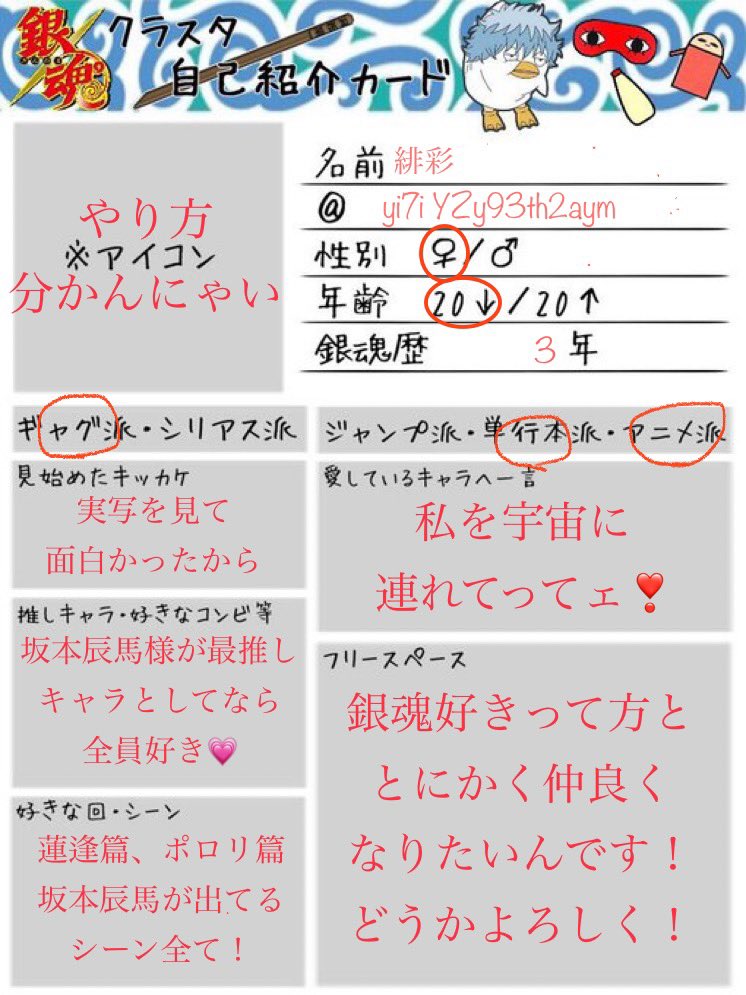 銀魂
クラスタ
自己紹介カード
やり方
※アイコン
分かんにゃい
名前 緋彩
@ yi7iYZy93th2aym
性別 ♀/♂
年齢 20↓/20↑
銀魂歴 3年
ギャグ派・シリアス派
ジャンプ派・単行本派・アニメ派
見始めたキッカケ
実写を見て
面白かったから
推しキャラ・好きなコンビ等
坂本辰馬様が最推し
キャラとしてなら
全員好き💗
好きな回・シーン
蓮逢篇、ポロリ篇
坂本辰馬が出てる
シーン全て!
愛しているキャラへ一言
私を宇宙に
連れてってェ❣️
フリースペース
銀魂好きって方と
とにかく仲良く
なりたいんです!
どうかよろしく!